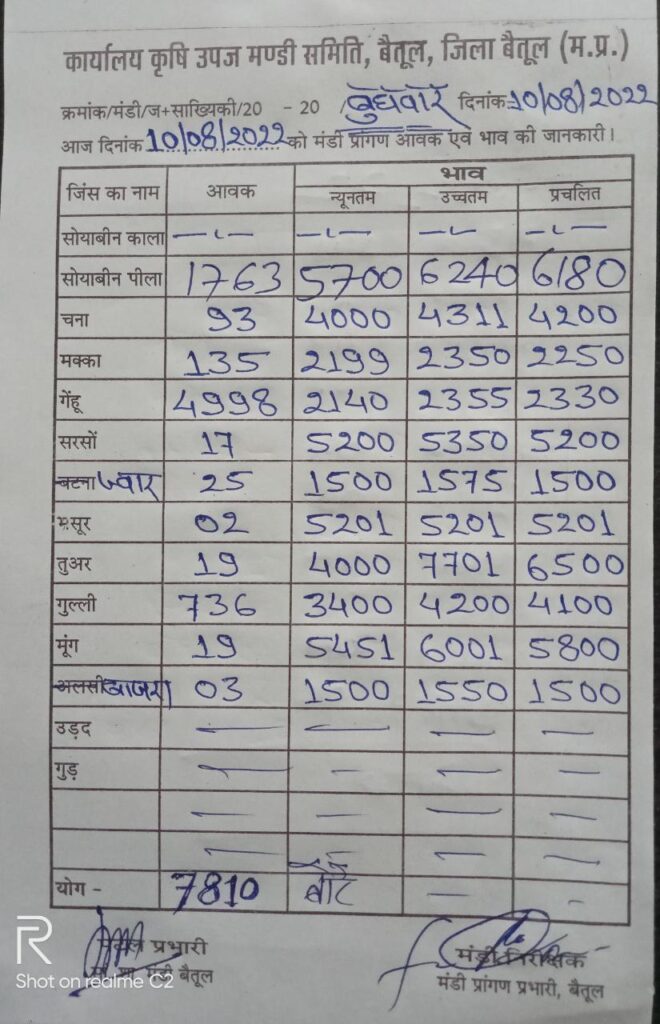 कार्यालय कृषि उपज मण्डी समिति, बैतूल, जिला बैतूल (म.प्र.)
क्रमांक/मंडी/ज+साख्यिकी/20 - 20 बुधवार दिनांक 10/08/2022
आज दिनांक 10/08/2022 को मंडी प्रांगण आवक एवं भाव की जानकारी।
जिंस का नाम आवक भाव
न्यूनतम उच्चतम प्रचलित
सोयाबीन काला — — —
सोयाबीन पीला 1763 5700 6240 6180
चना 93 4000 4311 4200
मक्का 135 2199 2350 2250
गेंहू 4998 2140 2355 2330
सरसों 17 5200 5350 5200
बटना ज्वार 25 1500 1575 1500
मसूर 02 5201 5201 5201
तुअर 19 4000 7701 6500
गुल्ली 736 3400 4200 4100
मूंग 19 5451 6001 5800
अलसी बाजरा 03 1500 1550 1500
उड़द — — — —
गुड़ — — — —
— — — —
— — — —
योग - 7810 बोरे — -
प्रभारी
मंडी बैतूल
मंडी निरीक्षक
मंडी प्रांगण प्रभारी, बैतूल
R
Shot on realme C2